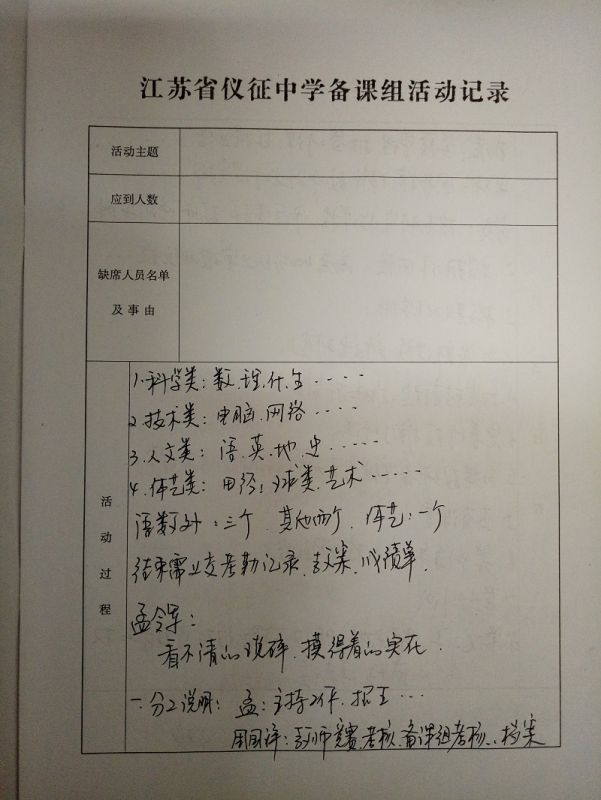 江苏省仪征中学备课组活动记录
活动主题
应到人数
缺席人员名单
及事由
活动过程
1.科学类：数.理.化.生····
2.技术类：电脑.网络····
3.人文类：语.英.地.史·····
4.体艺类：田径；球类.艺术·····
语数外：三个 其他两个. 体艺：一个
结束需上交考勤记录.教案.成绩单.
孟令军：
看不清的琐碎.摸得着的实在.
一.分工说明：孟：主持工作.招生···
周国评：教师竞赛.考核.备课组考核..档案